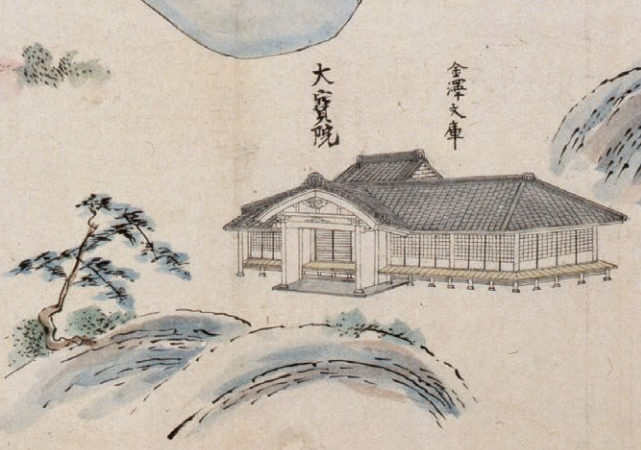 金澤文庫
大寶院